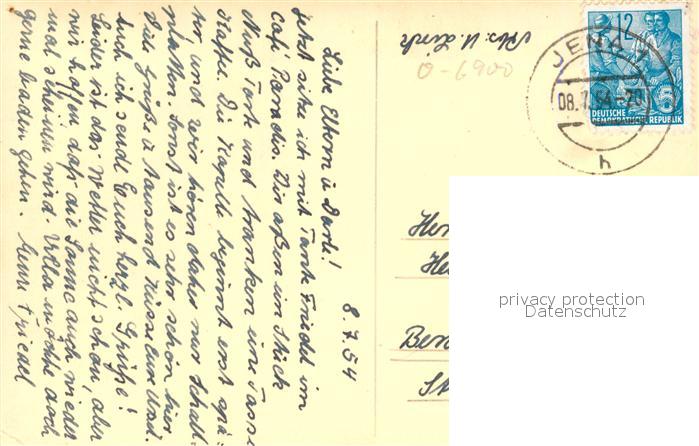 8.7.54
Liebe Eltern u. Dorle!
Jetzt sitze ich mit Tante Friedel im
Café Paradies. Wir aßen ein Stück
Nuß Torte und tranken eine Tasse
Kaffe. Die Kapelle beginnt erst spä:
ter und wir hören daher nur Schall:
platten. Sonst ist es sehr schön hier
Viele Grüße u. tausend Küsse Eure Ursel.
Auch ich sende Euch herzl. Grüße!
Leider ist das Wetter nicht schön, aber
wir hoffen daß die Sonne auch wieder
mal scheinen wird. Ulla möchte auch
gerne baden gehen. Eure Friedel
Abs: U.
0-6900
JENA 1
08.7.54-20
h
12
5
DEUTSCHE
DEMOKRATISCHE REPUBLIK
privacy protection
Datenschutz